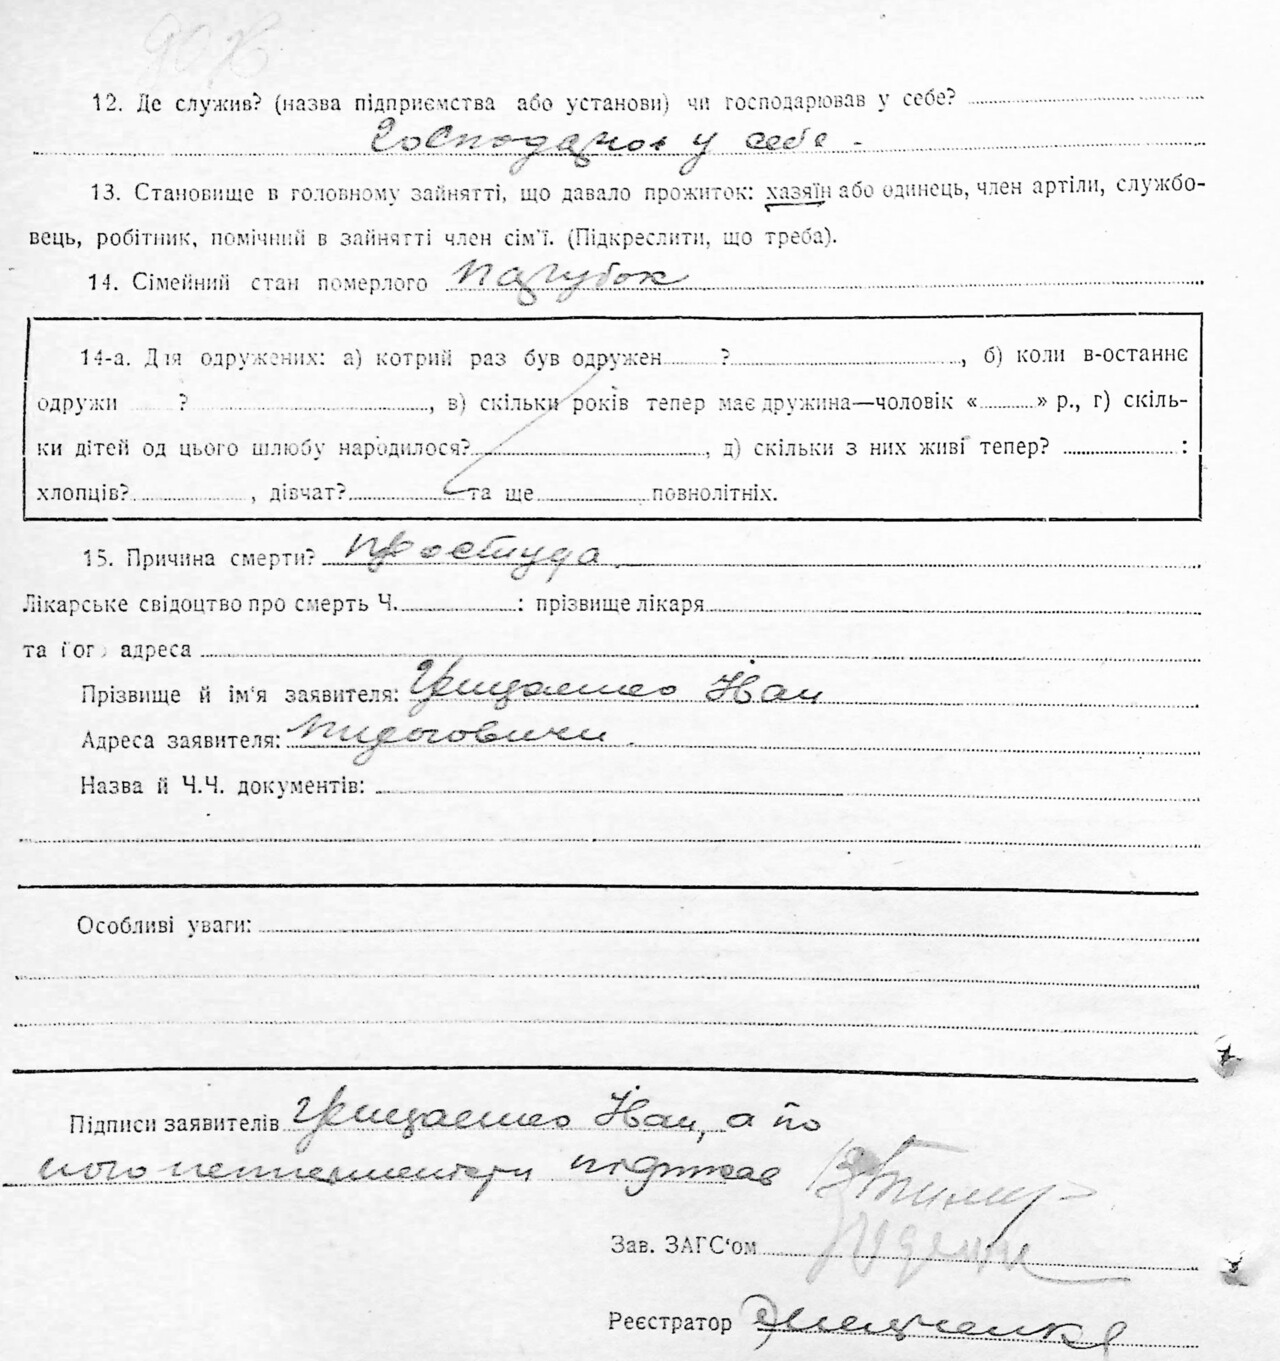 12. Де служив? (назва підприємства або установи) чи господарював у себе?
Господарюв у себе -
13. Становище в головному зайнятті, що давало прожиток: хазяїн або одинець, член артіли, службо-
вець, робітник, помічний в зайнятті член сім'ї. (Підкреслити, що треба).
14. Сімейний стан померлого парубок
14-а. Для одружених: а) котрий раз був одружен ?, б) коли в-останнє
одружи ?, в) скільки років тепер має дружина—чоловік « » р., г) скіль-
ки дітей од цього шлюбу народилося?, д) скільки з них живі тепер? :
хлопців?, дівчат? та ще повнолітніх.
15. Причина смерти? простуда.
Лікарське свідоцтво про смерть Ч. : прізвище лікаря
та його адреса
Прізвище й ім'я заявителя: Грищенко Іван
Адреса заявителя:
Назва й Ч.Ч. документів:
Особливі уваги:
Підписи заявителів Грищенко Іван, а по
його неписьменності підписав
Зав. ЗАГС'ом
Реєстратор